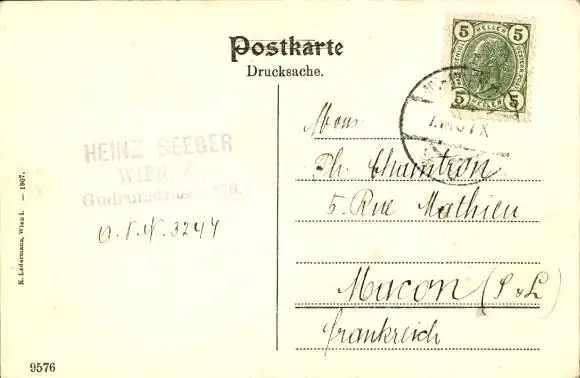 Postkarte
Drucksache.
5 HELLER 5
5 HELLER 5
HEINZ SEEBER
WIEN, X.,
Gudrunstrasse 176.
3244
K. Ledermann, Wien I. — 1907.
9576
Mons
Ph. Chamtron
5. Rue Mathieu
Macon (S & L)
Frankreich